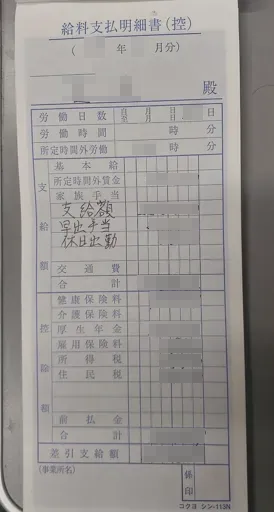 給料支払明細書(控)
( 年 月分)
殿
労働日数 自 月 日 至 月 日
労働時間 時 分
所定時間外労働 時 分
支給額
基本給
所定時間外賃金
家族手当
支給額
早出手当
休日出勤
交通費
合計
控除額
健康保険料
介護保険料
厚生年金
雇用保険料
所得税
住民税
前払金
合計
差引支給額
(事業所名)
係印
コクヨ シン-113N